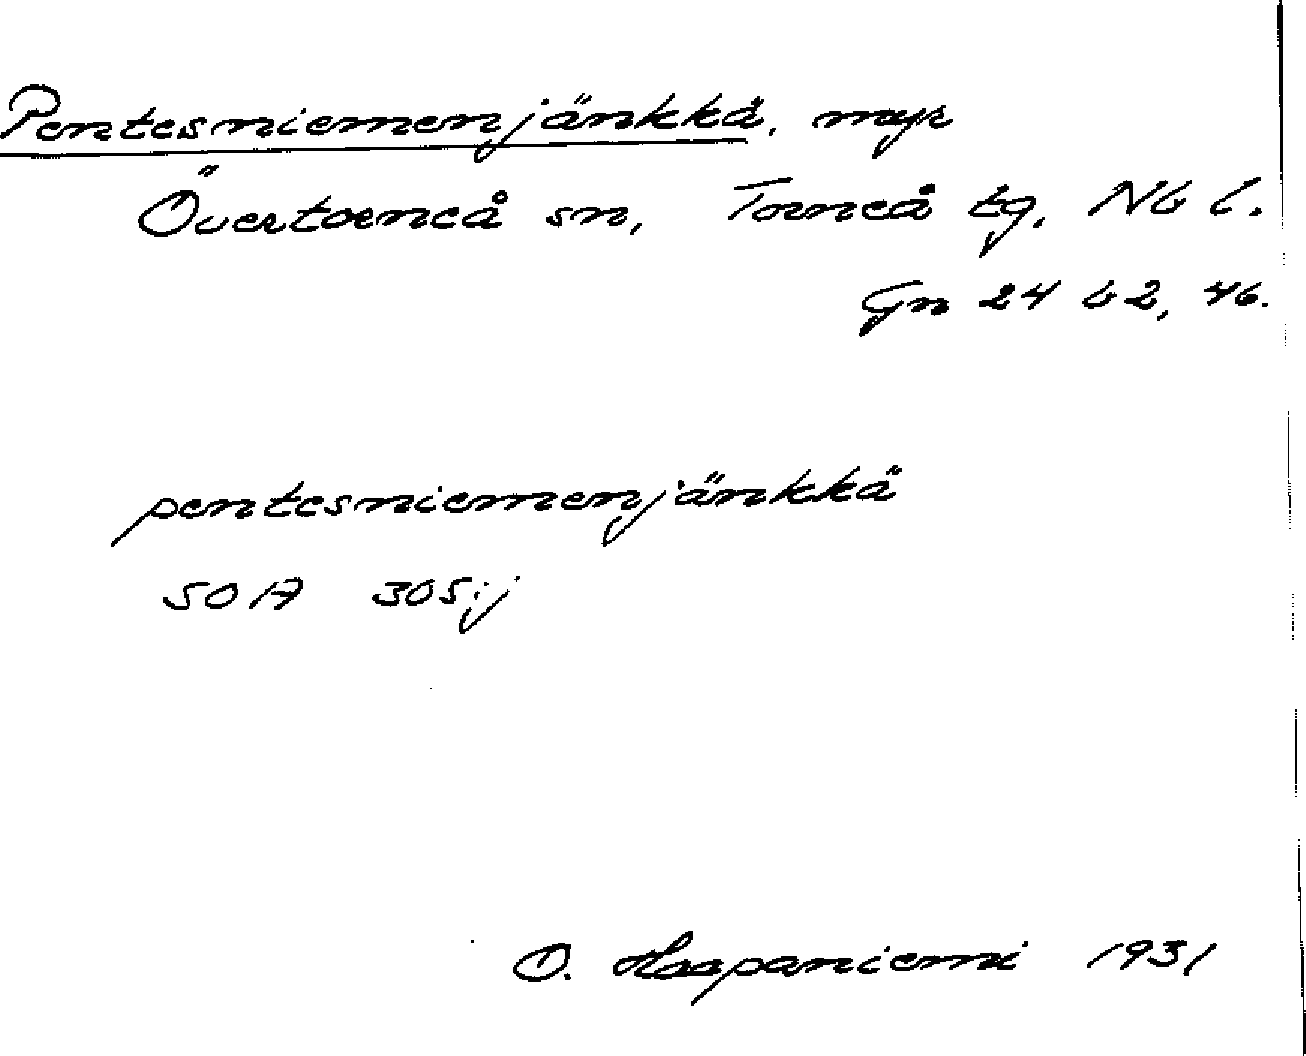 Pentesniemenjänkkä, myr
Övertorneå sn, Torneå tg. Nb l.
Gn 24 b2, 46.
pentesniemenjänkkä
SOA 305:j
O. Haapaniemi 1931